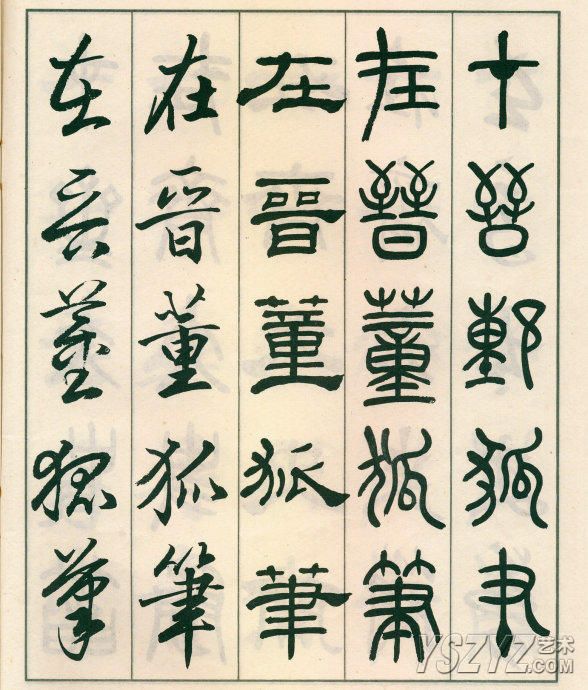 在晉董狐筆
在晉董狐筆
在晉董狐筆
在晉董狐筆
在晉董狐筆
YSZYZ艺术.com